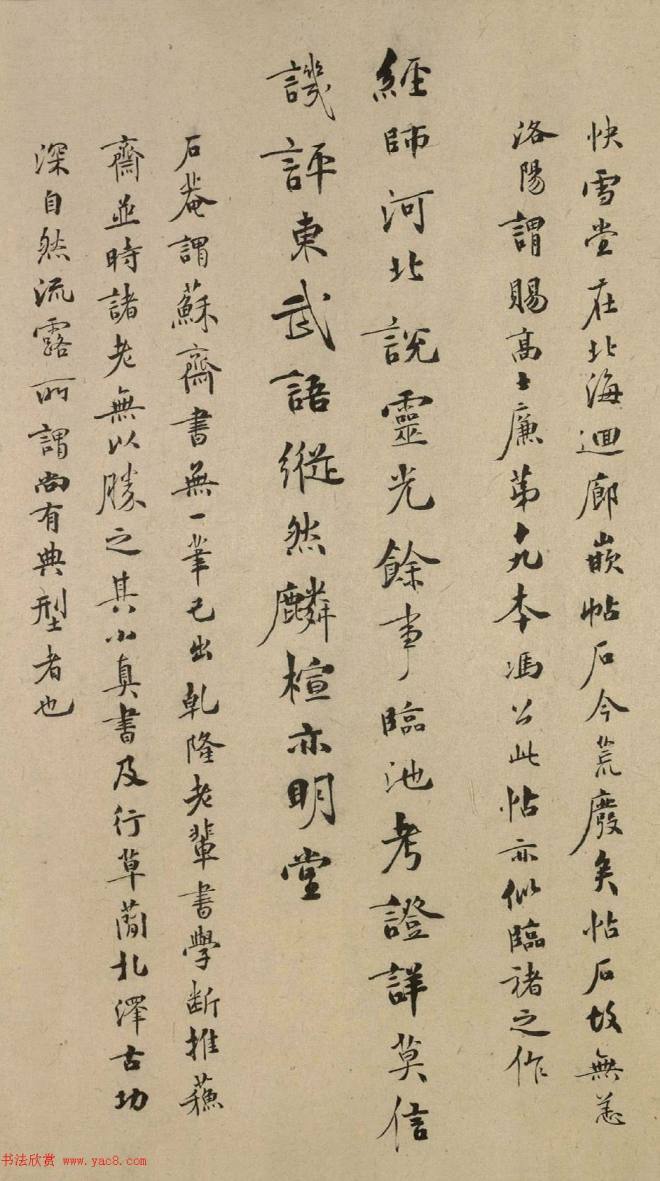 快雪堂在北海迴廊嵌帖石今荒廢矣帖石故無恙
洛陽謂賜高士廉第十九本馮公此帖亦似臨褚之作
經師河北說靈光餘事臨池考證詳莫信
譏評東武語縱然麟楦亦明堂
石菴謂蘇齋書無一筆己出乾隆老輩書學斷推蘇
齋並時諸老無以勝之其小真書及行草蕳札澤古功
深自然流露所謂尚有典型者也
书法欣赏 www.yac8.com